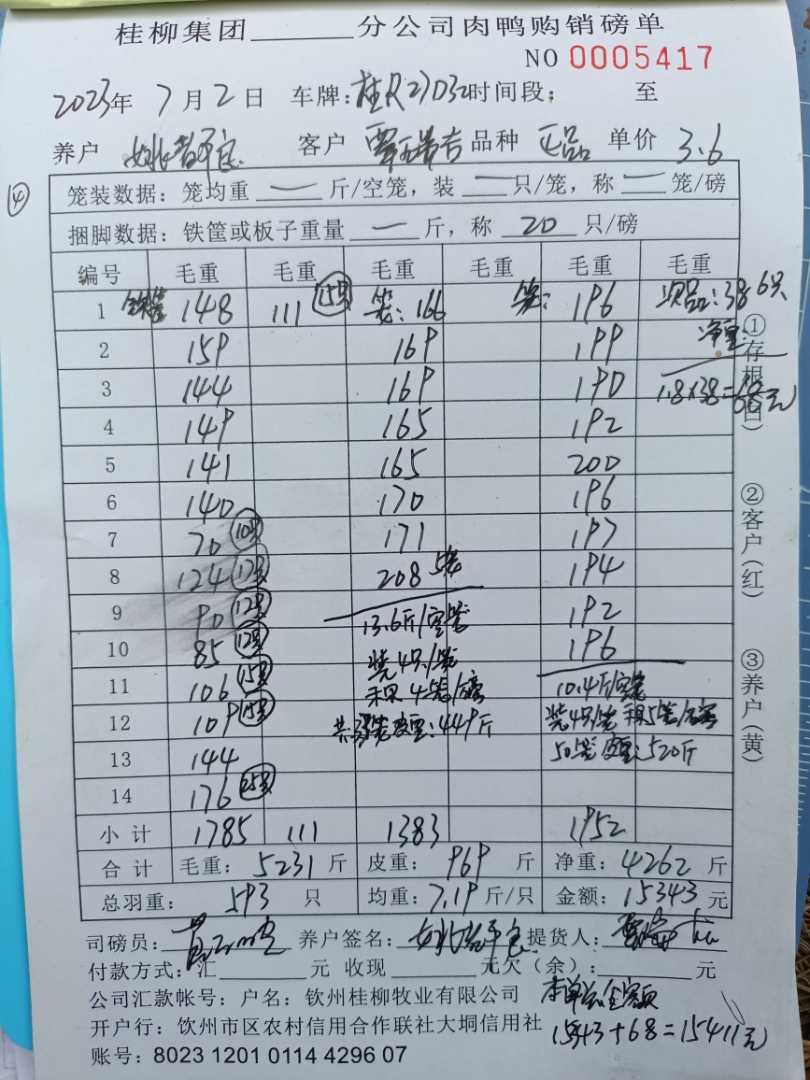 桂柳集团______分公司肉鸭购销磅单
NO 0005417
2023年 7月2日 车牌:桂R27D32时间段: 至
养户 客户 覃瑞吉 品种 正品 单价 3.6
④
笼装数据:笼均重 — 斤/空笼,装 — 只/笼,称 — 笼/磅
捆脚数据:铁筐或板子重量 — 斤,称 20 只/磅
编号 毛重 毛重 毛重 毛重 毛重 毛重
1 铁筐 148 111 (15只) 笼:166 笼:196 次品:38斤6只
2 159 169 199 净重:
3 144 169 190 1.8×38=68元
4 149 165 192
5 141 165 200
6 140 170 196
7 70 (10只) 171 197
8 124 (17只) 208 5笼 194
9 90 (12只) 13.6斤/空笼 192
10 85 (12只) 装4只/笼 196
11 106 (15只) 称4笼/磅 10.4斤/空笼
12 109 (15只) 共33笼皮重:449斤 装4只/笼 称5笼/磅
13 144 50笼 皮重:520斤
14 176 (25只)
小计 1785 111 1383 1952
合计 毛重: 5231 斤 皮重: 969 斤 净重: 4262 斤
总羽重: 593 只 均重: 7.19 斤/只 金额: 15343 元
①存根(白)
②客户(红)
③养户(黄)
司磅员: 养户签名: 提货人:
付款方式:汇______元 收现______元欠(余):______元
公司汇款帐号:户名:钦州桂柳牧业有限公司 本单总金额
开户行:钦州市区农村信用合作联社大垌信用社 15343+68=15411元
账号:8023 1201 0114 4296 07